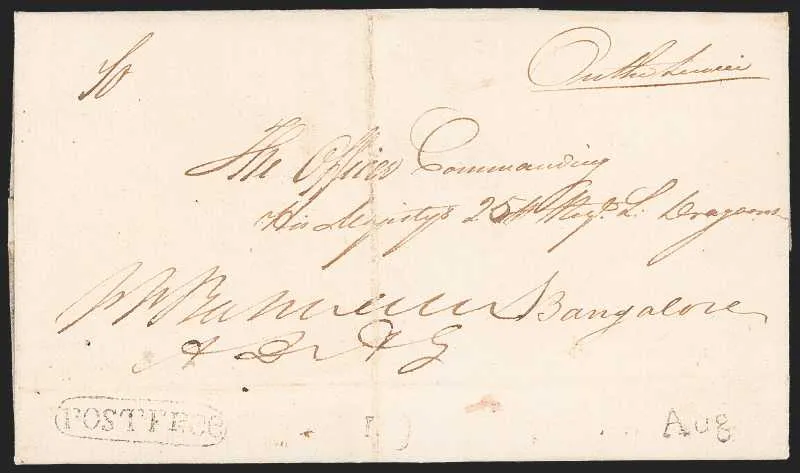 To
On the Service
The Officer Commanding
His Majestys 25th Regt L. Dragoons
Bangalore
A D A G
POST FREE
Aug